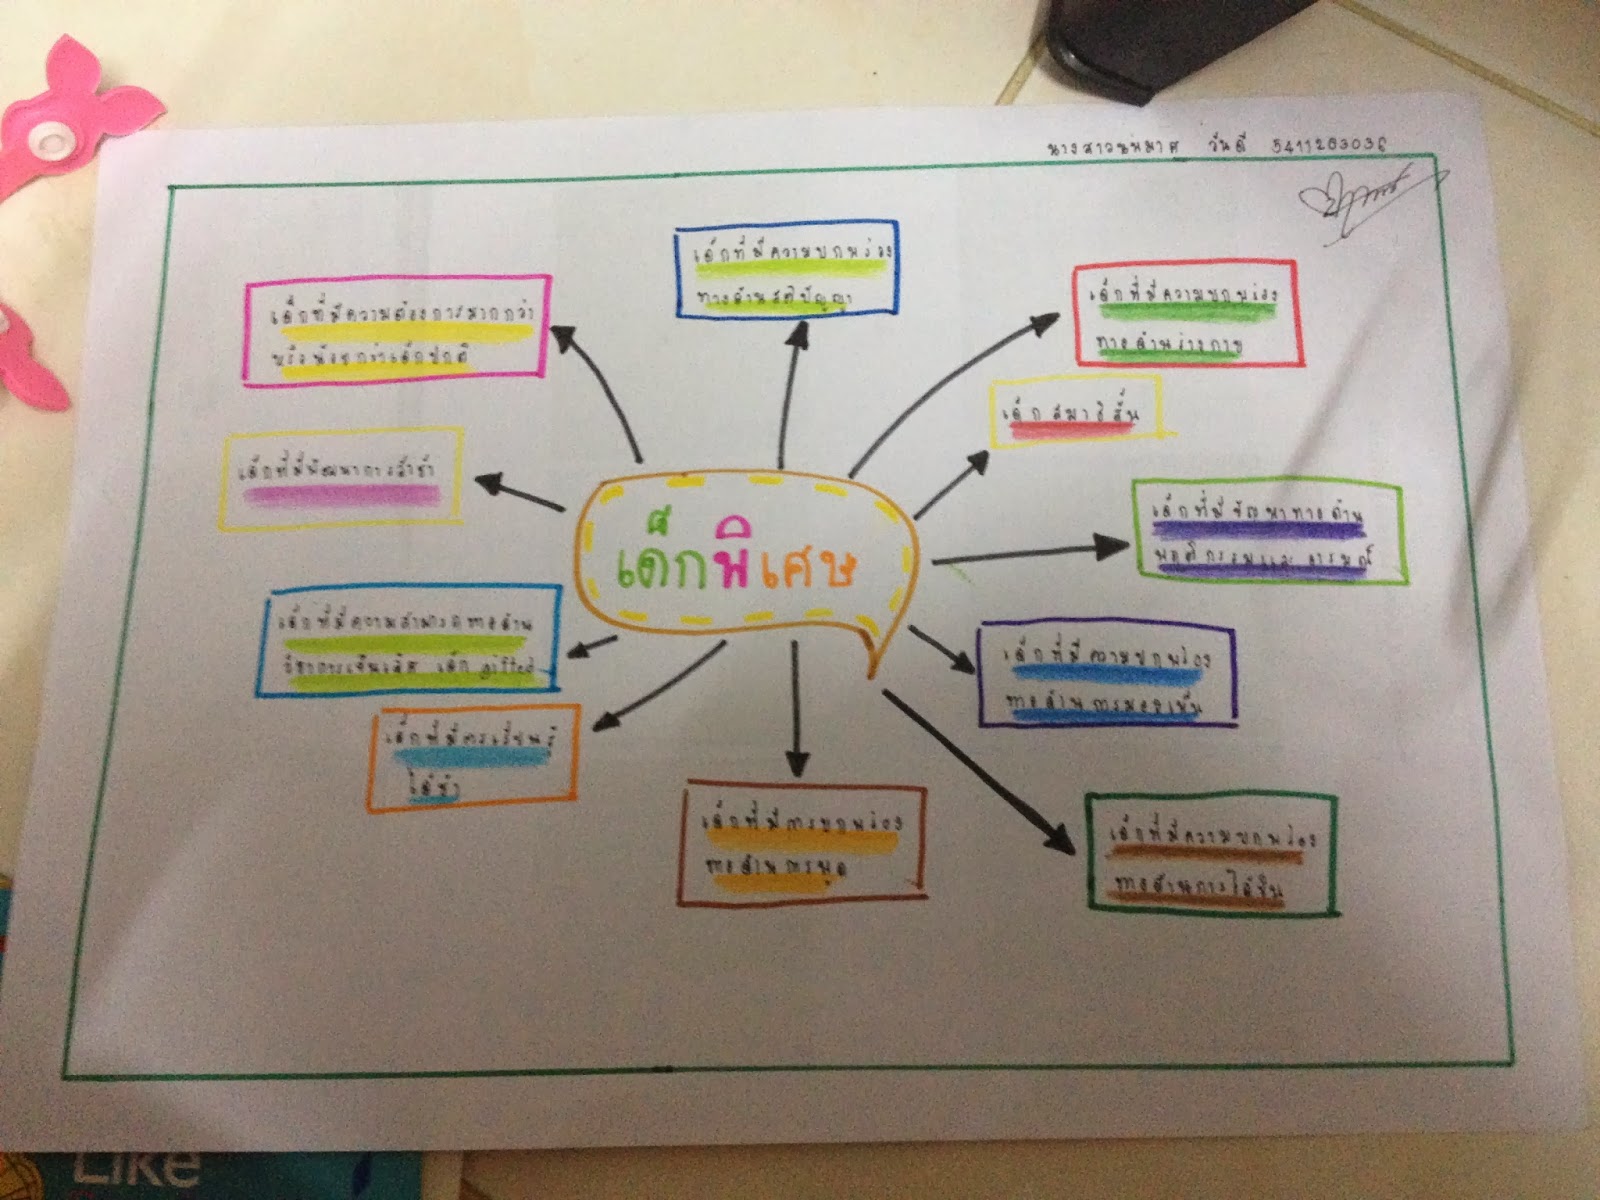 นางสาวนพมาศ วันดี 5411203036
เด็กที่มีความบกพร่อง
ทางด้านสติปัญญา
เด็กที่มีความต้องการมากกว่า
หรือน้อยกว่าเด็กปกติ
เด็กที่มีความบกพร่อง
ทางด้านร่างกาย
เด็กสมาธิสั้น
เด็กที่มีพัฒนาการล้าช้า
เด็กที่มีปัญหาทางด้าน
พฤติกรรมและอารมณ์
เด็กพิเศษ
เด็กที่มีความสามารถทางด้าน
วิชาการเป็นเลิศ เด็ก gifted
เด็กที่มีความบกพร่อง
ทางด้านการมองเห็น
เด็กที่มีการเรียนรู้
ได้ช้า
เด็กที่มีการบกพร่อง
ทางด้านการพูด
เด็กที่มีความบกพร่อง
ทางด้านการได้ยิน
Like